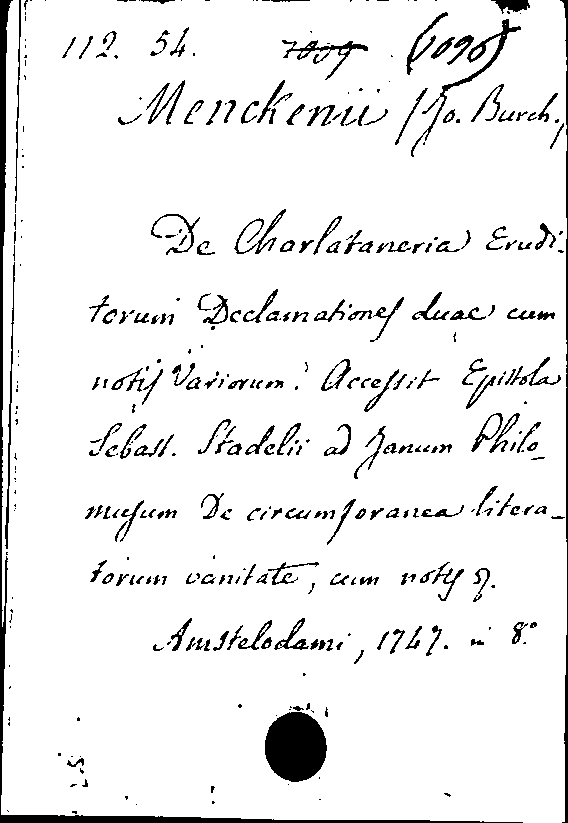 112. 54. 7009 (1090)
Menckenii /Jo. Burch./
De Charlataneria Erudi-
torum Declamationes duae cum
notis Variorum. Accessit Epistola
Sebast. Stadelii ad Janum Philo-
musum De circumforanea litera-
torum vanitate, cum notis
Amstelodami, 1747. in 8°